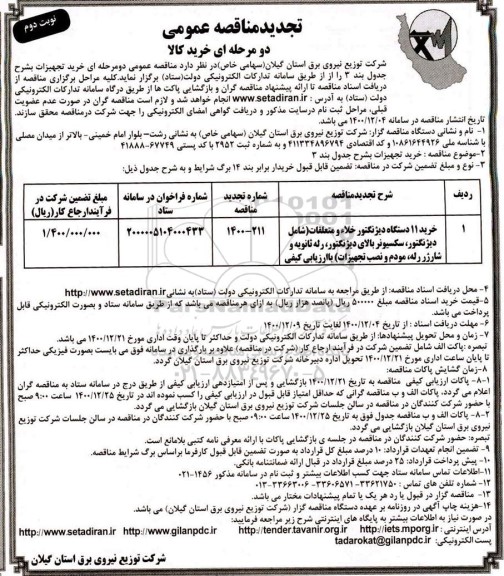 نوبت دوم
تجدیدمناقصه عمومی
دو مرحله ای خرید کالا
شرکت توزیع نیروی برق استان گیلان(سهامی خاص)در نظر دارد مناقصه عمومی دومرحله ای خرید تجهیزات بشرح
جدول بند ۳ را از از طریق سامانه تدارکات الکترونیکی دولت(ستاد) برگزار نماید.کلیه مراحل برگزاری مناقصه از
دریافت اسناد مناقصه تا ارائه پیشنهاد مناقصه گران و بازگشایی پاکت ها از طریق درگاه سامانه تدارکات الکترونیکی
دولت (ستاد) به آدرس : www.setadiran.ir انجام خواهد شد و لازم است مناقصه گران در صورت عدم عضویت
قبلی، مراحل ثبت نام درسایت مذکور و دریافت گواهی امضای الکترونیکی را جهت شرکت درمناقصه محقق سازند.
تاریخ انتشار مناقصه در سامانه ۱۴۰۰/۱۲/۰۴ می باشد.
۱- نام و نشانی دستگاه مناقصه گزار: شرکت توزیع نیروی برق استان گیلان (سهامی خاص) به نشانی رشت– بلوار امام خمینی- بالاتر از میدان مصلی
با شناسه ملی ۱۰۸۶۱۶۴۴۹۲۶ و کد اقتصادی ۴۱۱۳۳۴۸۹۶۷۹۴ و به شماره ثبت ۲۹۵۲ با کد پستی ۶۷۷۴۹-۴۱۸۸۸
۲-موضوع مناقصه : خرید تجهیزات بشرح جدول بند ۳
۳- نوع و مبلغ تضمین شرکت در مناقصه: تضمین قابل قبول خریدار برابر بند ۱۴ برگ شرایط و به شرح جدول ذیل:
ردیف | شرح تجدیدمناقصه | شماره تجدید مناقصه | شماره فراخوان در سامانه ستاد | مبلغ تضمین شرکت در فرآیندارجاع کار(ریال)
۱ | خرید ۱۱ دستگاه دیژنکتور خلاء و متعلقات(شامل دیژنکتور، سکسیونر بالای دیژنکتور، رله ثانویه و شارژر رله، مودم و نصب تجهیزات) باارزیابی کیفی | ۲۱۱-۱۴۰۰ | ۲۰۰۰۰۰۵۱۰۴۰۰۰۴۳۳ | ۱/۴۰۰/۰۰۰/۰۰۰
۴- محل دریافت اسناد مناقصه: از طریق مراجعه به سامانه تدارکات الکترونیکی دولت (ستاد)به نشانی http://www.setadiran.ir
۵-قیمت خرید اسناد مناقصه مبلغ ۵۰۰۰۰۰ ریال (پانصد هزار ریال) به ازای هرمناقصه می باشد که از طریق سامانه ستاد و بصورت الکترونیکی قابل
پرداخت می باشد.
۶- مهلت دریافت اسناد : از تاریخ ۱۴۰۰/۱۲/۰۴ لغایت تاریخ ۱۴۰۰/۱۲/۰۹
۷- زمان و محل تحویل پیشنهادها: از طریق سامانه تدارکات الکترونیکی دولت و حداکثر تا پایان وقت اداری مورخ ۱۴۰۰/۱۲/۲۱ می باشد.
تبصره: پاکت الف شامل تضمین شرکت در فرآیند ارجاع کار (شرکت در مناقصه) علاوه بر بارگذاری در سامانه فوق می بایست بصورت فیزیکی حداکثر
تا پایان ساعت اداری مورخ ۱۴۰۰/۱۲/۲۱ تحویل اداره دبیرخانه شرکت توزیع نیروی برق استان گیلان گردد.
۸-زمان گشایش پاکات مناقصه:
۸-۱- پاکات ارزیابی کیفی مناقصه به تاریخ ۱۴۰۰/۱۲/۲۱ بازگشایی و پس از امتیازدهی ارزیابی کیفی از طریق درج در سامانه ستاد به مناقصه گران
اعلام می گردد. پاکات الف و ب مناقصه گرانی که حداقل امتیاز قابل قبول در ارزیابی کیفی را کسب نموده اند در تاریخ ۱۴۰۰/۱۲/۲۵ ساعت ۹:۰۰ صبح
با حضور شرکت کنندگان در مناقصه در سالن جلسات شرکت توزیع نیروی برق استان گیلان بازگشایی می گردد.
۸-۲- پاکات الف و ب مناقصه جدول فوق به تاریخ ۱۴۰۰/۱۲/۲۵ ساعت ۰۹:۰۰ صبح با حضور شرکت کنندگان در مناقصه در سالن جلسات شرکت توزیع
نیروی برق استان گیلان بازگشایی می گردد.
تبصره: حضور شرکت کنندگان در مناقصه در جلسه ی بازگشایی پاکات با ارائه معرفی نامه کتبی بلامانع است.
۹- تضمین انجام تعهدات قرارداد: ۱۰ درصد مبلغ کل قرارداد به صورت تضمین قابل قبول کارفرما براساس برگ شرایط مناقصه.
۱۰- پیش پرداخت قرارداد: ۲۵ درصد مبلغ قرارداد در قبال ارائه ضمانتنامه بانکی.
۱۱- اطلاعات تماس سامانه ستاد جهت کسب اطلاعات بیشتر و ثبت نام در سامانه مذکور ۱۴۵۶-۰۲۱
۱۲- شماره تلفن های تماس : ۳۳۶۲۱۷۵۰-۳۳۶۰۶۵۷۱ - ۳۳۶۶۳۰۰۶-۰۱۳
۱۳- مناقصه گزار در قبول یا رد هر یک یا تمام پیشنهادات مختار می باشد.
۱۴-هزینه چاپ آگهی در روزنامه بر عهده دستگاه مناقصه گزار (شرکت توزیع نیروی برق استان گیلان) می باشد.
در صورت نیاز به اطلاعات بیشتر به پایگاه های اینترنتی شرح زیر مراجعه فرمایید:
آدرس اینترنتی : http://iets.mporg.ir http://tender.tavanir.org.ir http://www.gilanpdc.ir http://www.setadiran.ir
پست الکترونیکی: tadarokat@gilanpdc.ir
شرکت توزیع نیروی برق استان گیلان